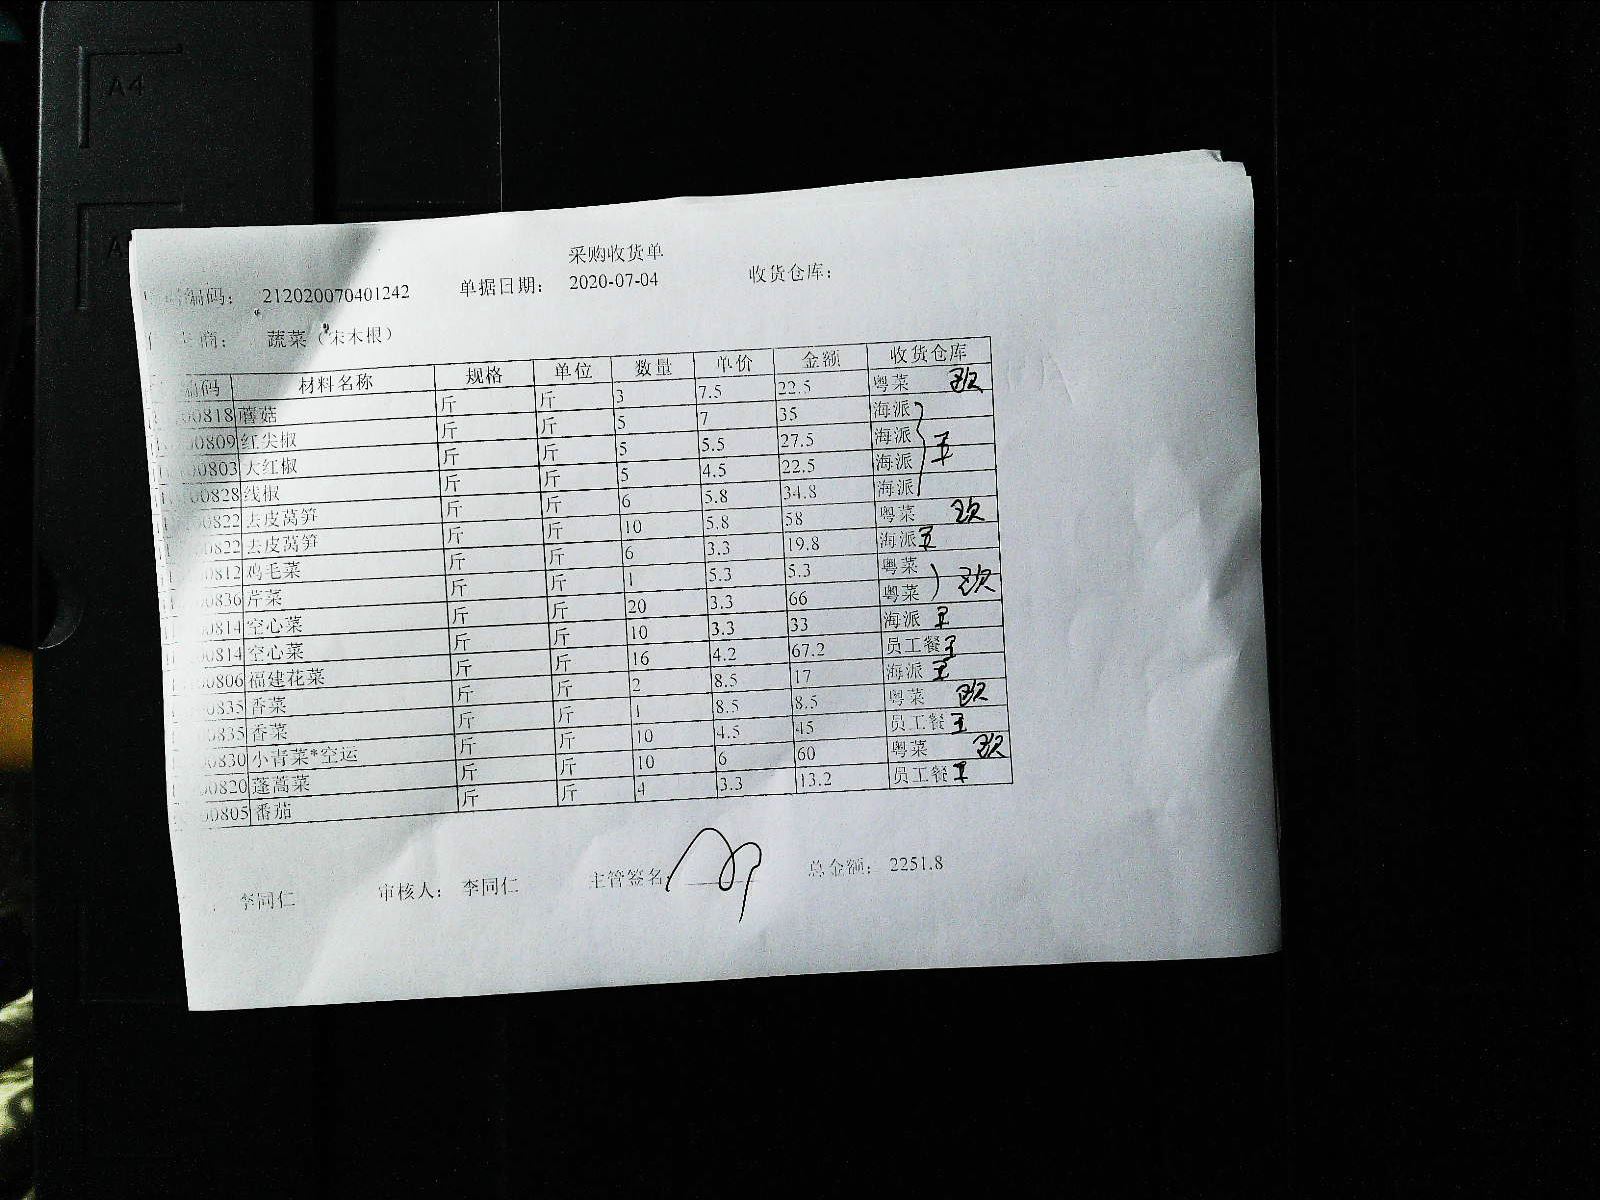 A4
采购收货单
编码： 212020070401242 单据日期： 2020-07-04 收货仓库：
商： 蔬菜（宋木根）
编码 材料名称 规格 单位 数量 单价 金额 收货仓库
00818 蘑菇 斤 斤 3 7.5 22.5 粤菜
00809 红尖椒 斤 斤 5 7 35 海派
00803 大红椒 斤 斤 5 5.5 27.5 海派
00828 线椒 斤 斤 5 4.5 22.5 海派
00822 去皮莴笋 斤 斤 6 5.8 34.8 海派
00822 去皮莴笋 斤 斤 10 5.8 58 粤菜
00812 鸡毛菜 斤 斤 6 3.3 19.8 海派
00836 芹菜 斤 斤 1 5.3 5.3 粤菜
00814 空心菜 斤 斤 20 3.3 66 粤菜
00814 空心菜 斤 斤 10 3.3 33 海派
00806 福建花菜 斤 斤 16 4.2 67.2 员工餐
00835 香菜 斤 斤 2 8.5 17 海派
00835 香菜 斤 斤 1 8.5 8.5 粤菜
00830 小青菜*空运 斤 斤 10 4.5 45 员工餐
00820 蓬蒿菜 斤 斤 10 6 60 粤菜
00805 番茄 斤 斤 4 3.3 13.2 员工餐
李同仁 审核人： 李同仁 主管签名： 总金额： 2251.8